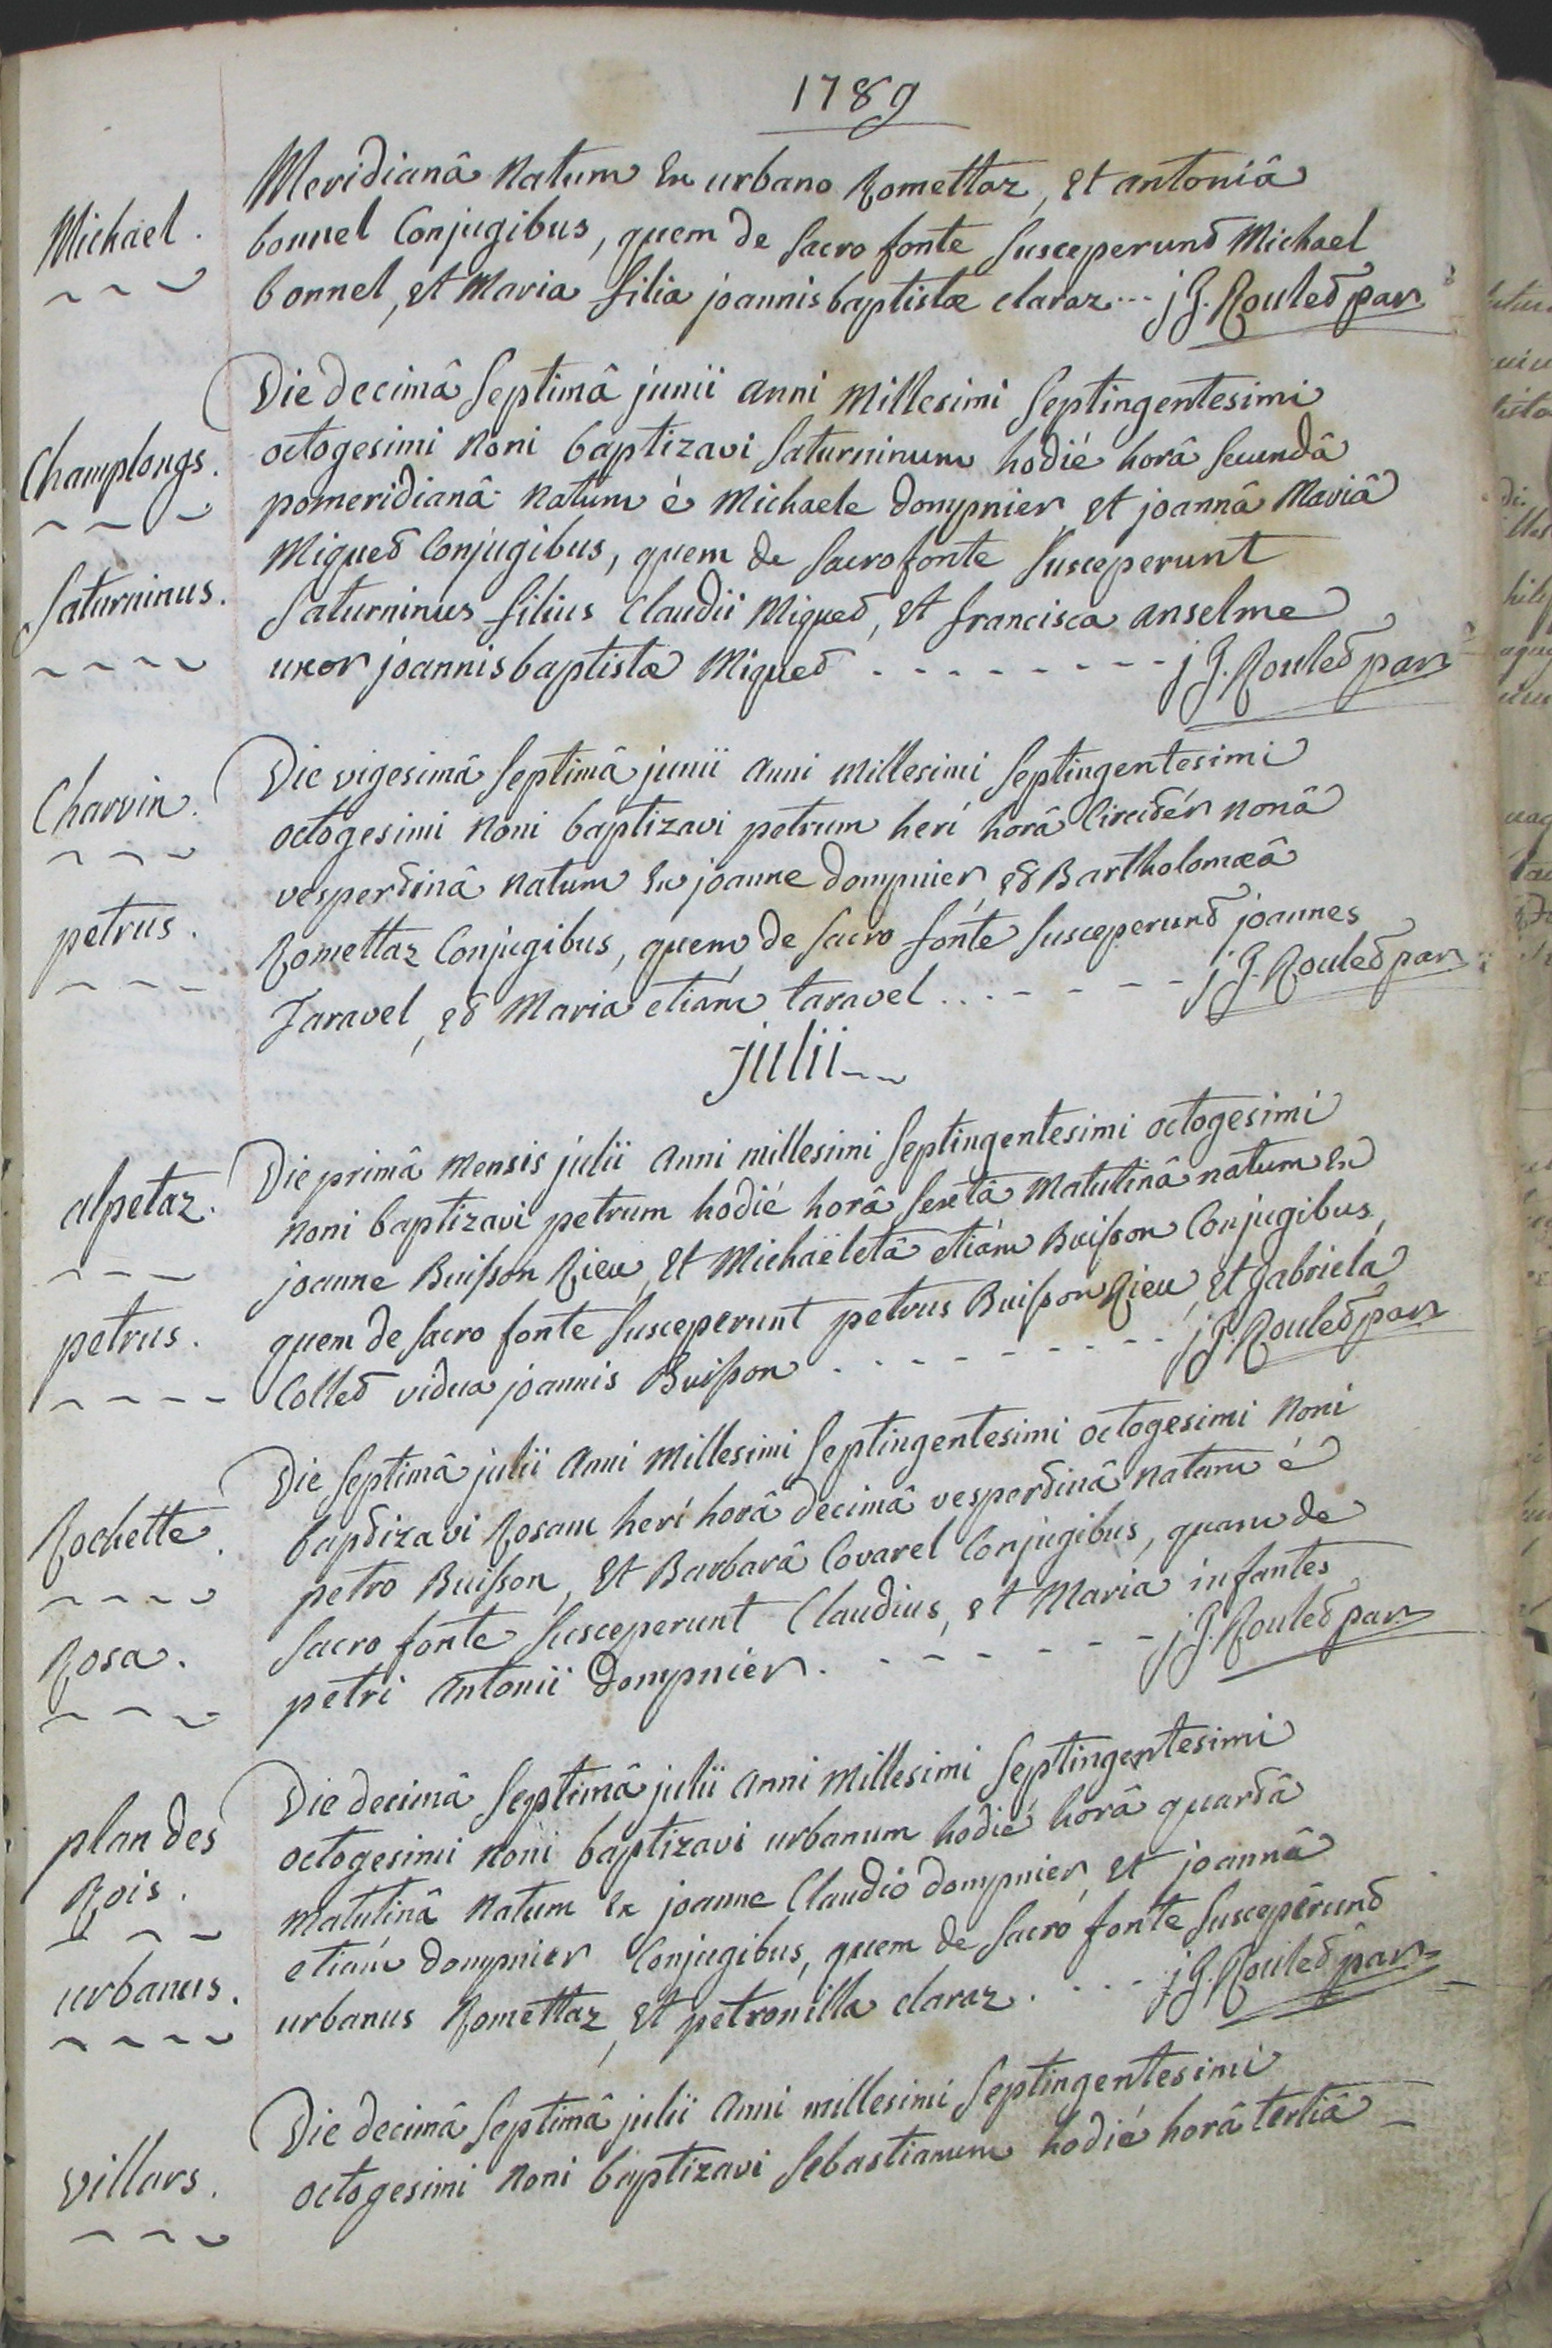 1789
Meridianâ natum ex urbano Romettaz, et antoniâ
Michael.
bonnel Conjugibus, quem de sacro fonte susceperunt Michael
bonnel, et Maria filia joannis baptistæ claraz... j G. Roulet par
Die decimâ septimâ junii anni Millesimi septingentesimi
Champlongs.
octogesimi noni baptizavi saturninum hodié horâ secundâ
pomeridianâ natum é Michaele dompnier, et joannâ Mariâ
Miquet Conjugibus, quem de sacro fonte susceperunt
saturninus.
saturninus filius Claudii Miquet, et francisca anselme
uxor joannis baptistæ Miquet - - - - - - - - j G. Roulet par
Die vigesimâ septimâ junii anni millesimi septingentesimi
Charvin.
octogesimi noni baptizavi petrum herí horâ Circitér nonâ
vespertinâ natum ex joanne dompnier, et Bartholomæâ
petrus.
Romettaz Conjugibus, quem de sacro fonte susceperunt joannes
Taravel, et Maria etiám taravel . . . - - - - j G. Roulet par
julii
Die primâ mensis julii anni millesimi septingentesimi octogesimi
alpetaz.
noni baptizavi petrum hodié horâ sextâ matutinâ natum ex
joanne Buisson Rieu, et Michaëletâ etiám Buisson Conjugibus,
petrus.
quem de sacro fonte susceperunt petrus Buisson Rieu, et gabriela
Collet vidua joannis Buisson . - - - - - - - - j G. Roulet par
Die septimâ julii anni millesimi septingentesimi octogesimi noni
Rochette.
baptizavi Rosam herí horâ decimâ vespertinâ natam é
petro Buisson, et Barbarâ Covarel Conjugibus, quam de
Rosa.
sacro fonte susceperunt Claudius, et Maria infantes
petri antonii dompnier. - - - - - - - j G. Roulet par
Die decimâ septimâ julii anni millesimi septingentesimi
plan des
octogesimi noni baptizavi urbanum hodié horâ quartâ
Rois.
matutinâ natum ex joanne Claudio dompnier, et joannâ
etiám dompnier Conjugibus, quem de sacro fonte susceperunt
urbanus.
urbanus Romettaz, et petronilla claraz. - - - j G. Roulet par
Die decimâ septimâ julii anni millesimi septingentesimi
villars.
octogesimi noni baptizavi sebastianum hodié horâ tertiâ